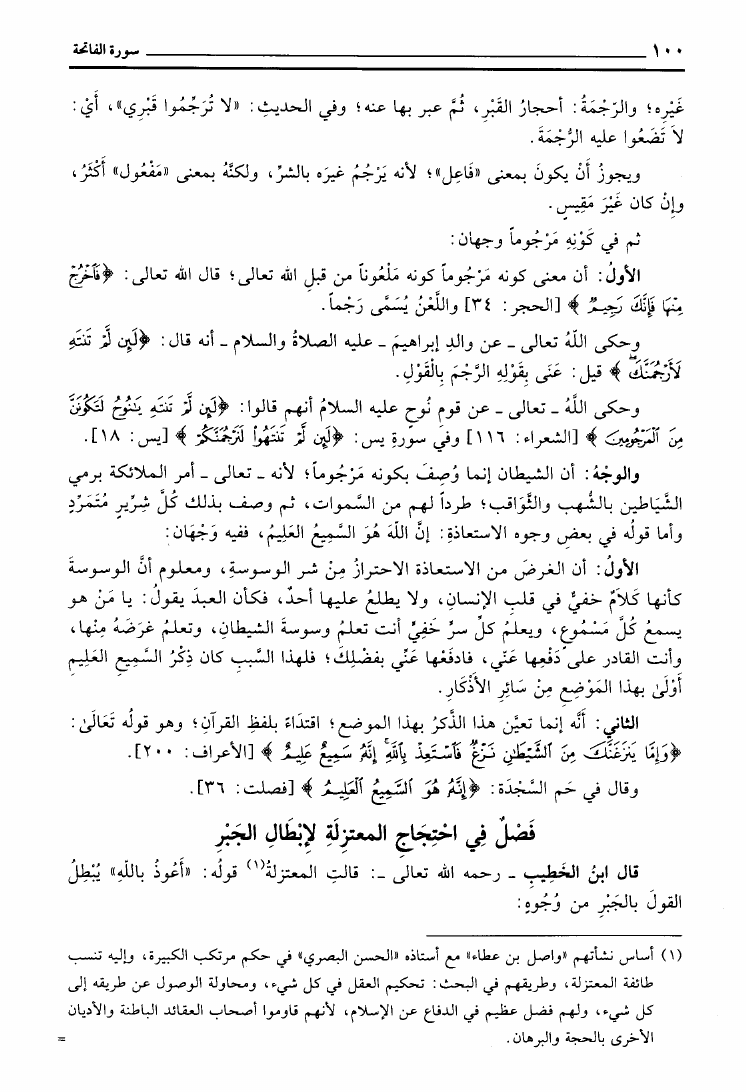 ١٠٠ سورة الفاتحة
غَيْرِه؛ والرّجْمَةُ: أحجارُ القَبْرِ، ثُمَّ عبر بها عنه؛ وفي الحديثِ: «لا تُرَجِّمُوا قَبْرِي»، أَيْ:
لاَ تَضَعُوا عليه الرُّجْمَةَ.
ويجوزُ أَنْ يكونَ بمعنى «فَاعِل»؛ لأنه يَرْجُمُ غيرَه بالشرِّ، ولكنَّهُ بمعنى «مَفْعُول» أَكْثَرُ،
وإنْ كان غَيْرَ مَقِيسٍ.
ثم في كَوْنِهِ مَرْجُوماً وجهان:
الأولُ: أن معنى كونه مَرْجُوماً كونه مَلْعُوناً من قبلِ الله تعالى؛ قال الله تعالى: ﴿فَٱخْرُجْ
مِنْهَا فَإِنَّكَ رَجِيمٌ﴾ [الحجر: ٣٤] واللَّعْنُ يُسَمَّى رَجْماً.
وحكى اللَّهُ تعالى ـ عن والدِ إبراهيمَ ـ عليه الصلاةُ والسلام ـ أنه قال: ﴿لَئِن لَّمْ تَنتَهِ
لَأَرْجُمَنَّكَ﴾ قيل: عَنَى بِقَوْلِهِ الرَّجْمَ بِالْقَوْلِ.
وحكى اللَّهُ ـ تعالى ـ عن قومِ نُوحٍ عليه السلامُ أنهم قالوا: ﴿لَئِن لَّمْ تَنتَهِ يَٰنُوحُ لَتَكُونَنَّ
مِنَ ٱلْمَرْجُومِينَ﴾ [الشعراء: ١١٦] وفي سورةِ يس: ﴿لَئِن لَّمْ تَنتَهُوا۟ لَنَرْجُمَنَّكُمْ﴾ [يس: ١٨].
والوجْهُ: أن الشيطان إنما وُصِفَ بكونه مَرْجُوماً؛ لأنه ـ تعالى ـ أمر الملائكة برمي
الشَّيَاطين بالشُّهب والثَّوَاقب؛ طرداً لهم من السَّموات، ثم وصف بذلك كُلَّ شِرِّيرٍ مُتَمَرِّدٍ
وأما قولُه في بعضِ وجوه الاستعاذةِ: إنَّ اللَّهَ هُوَ السَّمِيعُ العَلِيمُ، ففيه وَجْهَان:
الأولُ: أن الغرضَ من الاستعاذة الاحترازُ مِنْ شر الوسوسةِ، ومعلوم أنَّ الوسوسةَ
كأنها كَلاَمٌ خفيٌّ في قلبِ الإنسانِ، ولا يطلعُ عليها أحدٌ، فكأن العبدَ يقولُ: يا مَنْ هو
يسمعُ كُلَّ مَسْمُوعٍ، ويعلمُ كلَّ سرٍّ خَفِيٍّ أنت تعلمُ وسوسةَ الشيطانِ، وتعلمُ غرَضَهُ مِنْها،
وأنت القادر على دَفْعِها عَنّي، فادفَعْها عَنِّي بفضْلِكَ؛ فلهذا السَّببِ كان ذِكْرُ السَّمِيعِ العَلِيمِ
أوْلَى بهذا المَوْضِعِ مِنْ سَائِرِ الأَذْكَارِ.
الثاني: أنَّه إنما تعيَّن هذا الذَّكرُ بهذا الموضع؛ اقتدَاءً بلفظِ القرآنِ؛ وهو قولُه تَعَالَىٰ:
﴿وَإِمَّا يَنزَغَنَّكَ مِنَ ٱلشَّيْطَٰنِ نَزْغٌ فَٱسْتَعِذْ بِٱللَّهِ إِنَّهُۥ سَمِيعٌ عَلِيمٌ﴾ [الأعراف: ٢٠٠].
وقال في حَم السَّجْدَة: ﴿إِنَّهُۥ هُوَ ٱلسَّمِيعُ ٱلْعَلِيمُ﴾ [فصلت: ٣٦].
فَصْلٌ فِي احْتِجَاجِ المعتزلَةِ لإِبْطَالِ الجَبْرِ
قال ابنُ الخَطِيبِ ـ رحمه الله تعالى ـ: قالتِ المعتزلةُ(١) قولُه: «أَعُوذُ باللَّهِ» يُبْطِلُ
القولَ بالجَبْرِ من وُجُوهٍ:
(١) أساس نشأتهم «واصل بن عطاء» مع أستاذه «الحسن البصري» في حكم مرتكب الكبيرة، وإليه تنسب
طائفة المعتزلة، وطريقهم في البحث: تحكيم العقل في كل شيء، ومحاولة الوصول عن طريقه إلى
كل شيء، ولهم فضل عظيم في الدفاع عن الإسلام، لأنهم قاوموا أصحاب العقائد الباطنة والأديان
الأخرى بالحجة والبرهان. =